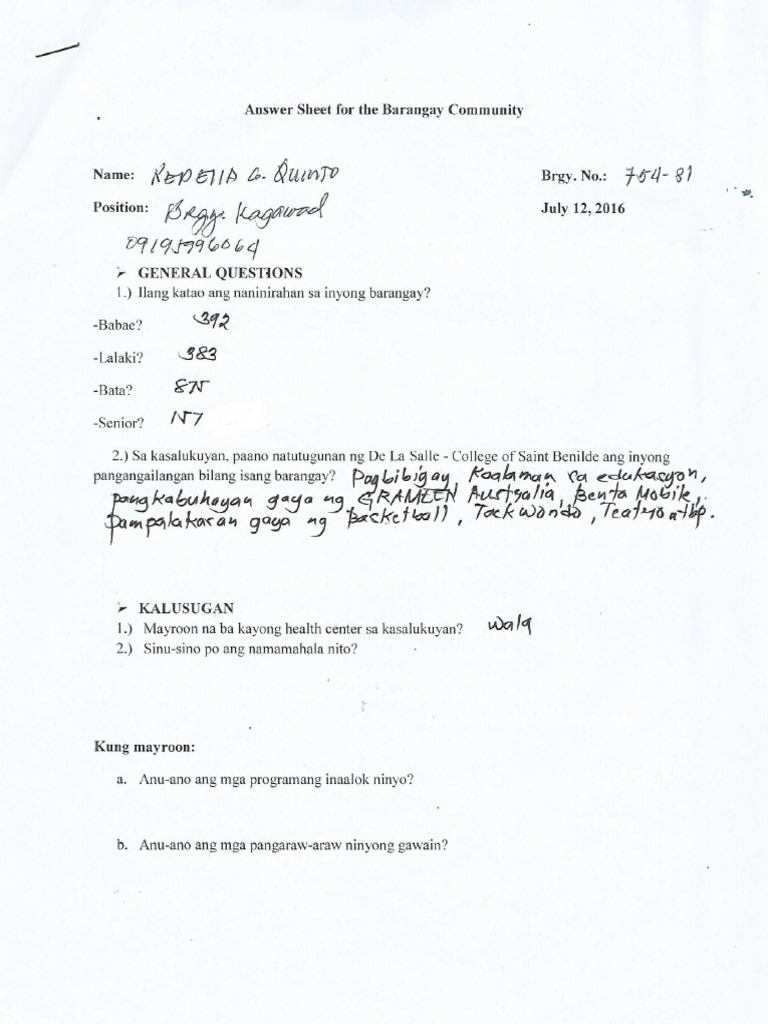 Answer Sheet for the Barangay Community
Name: G. QUINTO Brgy. No.: 754-81
Position: Brgy. Kagawad July 12, 2016
09195996064
➤ GENERAL QUESTIONS
1.) Ilang katao ang naninirahan sa inyong barangay?
-Babae? 392
-Lalaki? 383
-Bata? 875
-Senior? 157
2.) Sa kasalukuyan, paano natutugunan ng De La Salle - College of Saint Benilde ang inyong
pangangailangan bilang isang barangay? Pagbibigay, Kaalaman sa edukasyon,
pangkabuhayan gaya ng GRAMEEN Australia, Benta Mobile,
pampalakasan gaya ng Backetball, Taekwondo, Teatro atbp.
➤ KALUSUGAN
1.) Mayroon na ba kayong health center sa kasalukuyan? wala
2.) Sinu-sino po ang namamahala nito?
Kung mayroon:
a. Anu-ano ang mga programang inaalok ninyo?
b. Anu-ano ang mga pangaraw-araw ninyong gawain?